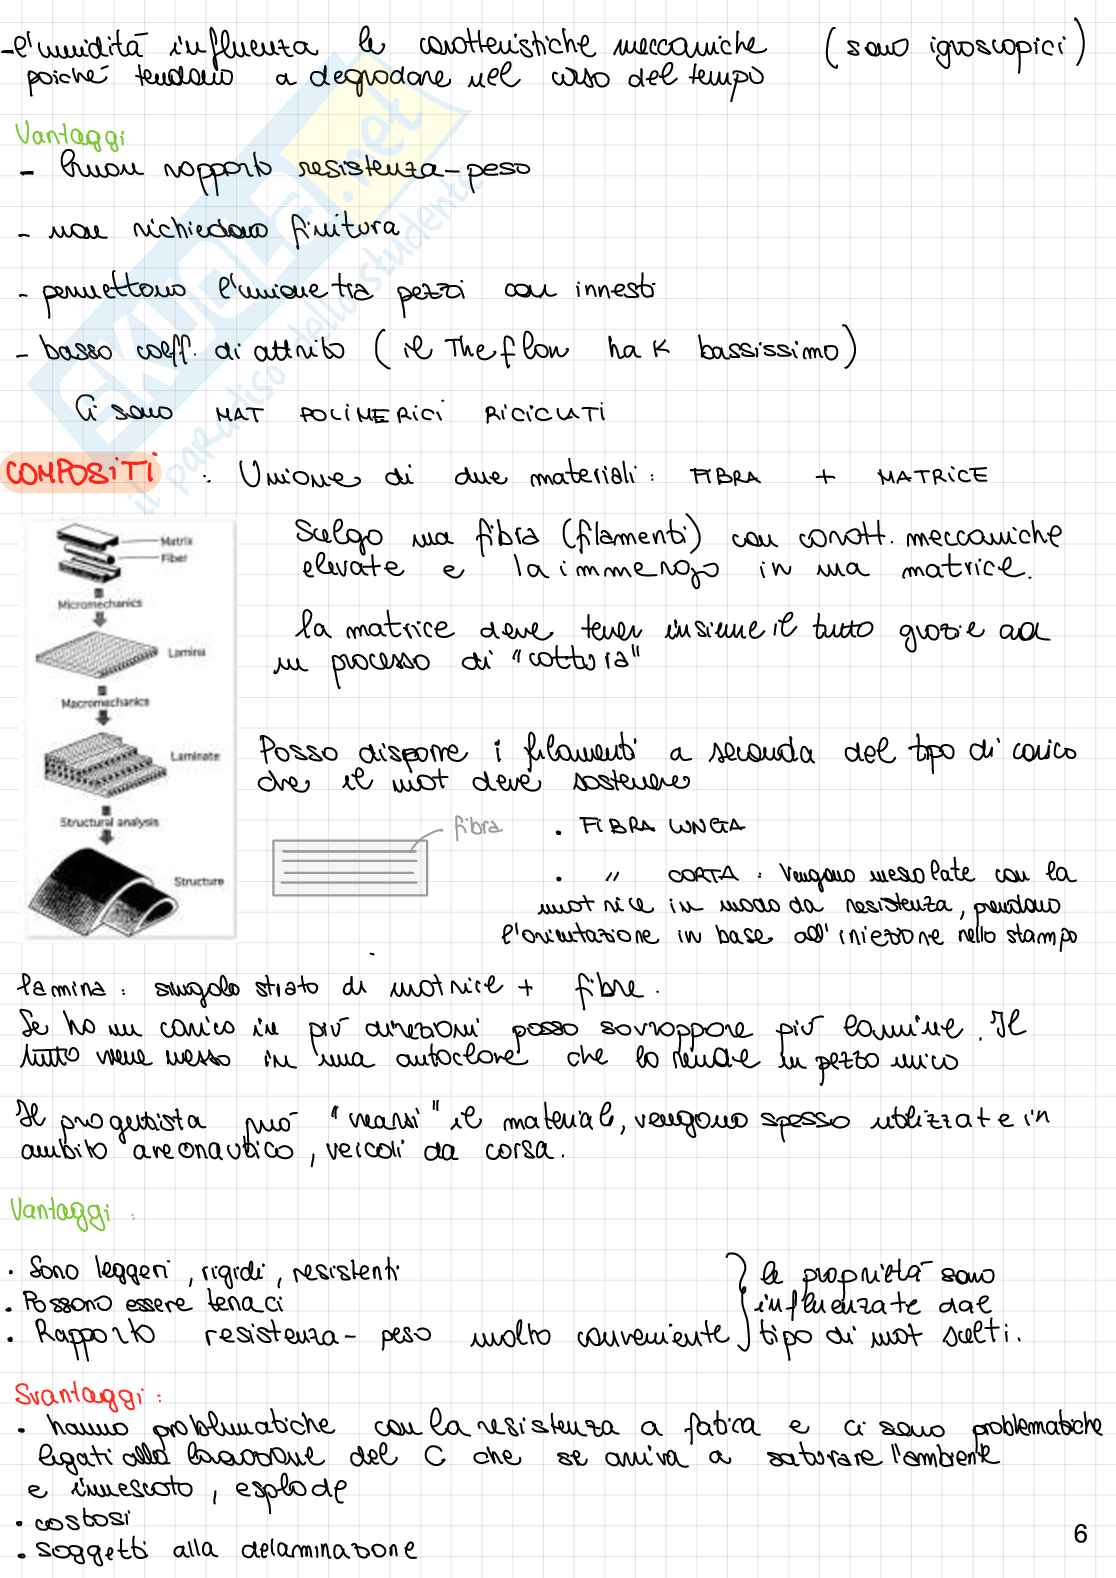 -l'umidità influenza le caratteristiche meccaniche (sono igroscopici)
poiché tendono a degradare nel corso del tempo
Vantaggi
- Buon rapporto resistenza-peso
- non richiedono finitura
- permettono l'unione tra pezzi con innesti
- basso coeff. di attrito (il Theflon ha K bassissimo)
Ci sono MAT POLIMERICI RICICLATI
COMPOSITI : Unione di due materiali: FIBRA + MATRICE
Scelgo una fibra (filamenti) con caratt. meccaniche
elevate e la immergo in una matrice.
la matrice deve tener insieme il tutto grazie ad
un processo di "cottura"
Matrix
Fiber
Micromechanics
Lamina
Macromechanics
Laminate
Structural analysis
Structure
Posso disporre i filamenti a seconda del tipo di carico
che il mat deve sostenere
fibra
. FIBRA LUNGA
. " CORTA : Vengono mescolate con la
matrice in modo da resistenza, prendono
l'orientazione in base all'iniezione nello stampo
lamina: singolo strato di matrice + fibre.
Se ho un carico in più direzioni posso sovrapporre più lamine. Il
tutto viene messo in una autoclave che lo rende un pezzo unico
Il progettista può "crearsi" il material, vengono spesso utilizzate in
ambito areonautico, veicoli da corsa.
Vantaggi :
. Sono leggeri, rigidi, resistenti
. Possono essere tenaci
. Rapporto resistenza-peso molto conveniente
le proprietà sono
influenzate dal
tipo di mat scelti.
Svantaggi:
. hanno problematiche con la resistenza a fatica e ci sono problematiche
legati alla lavorazione del C che se arriva a saturare l'ambiente
e innescato, esplode
. costosi
. soggetti alla delaminazione
6
SKUOLA.net
il paradiso dello studente